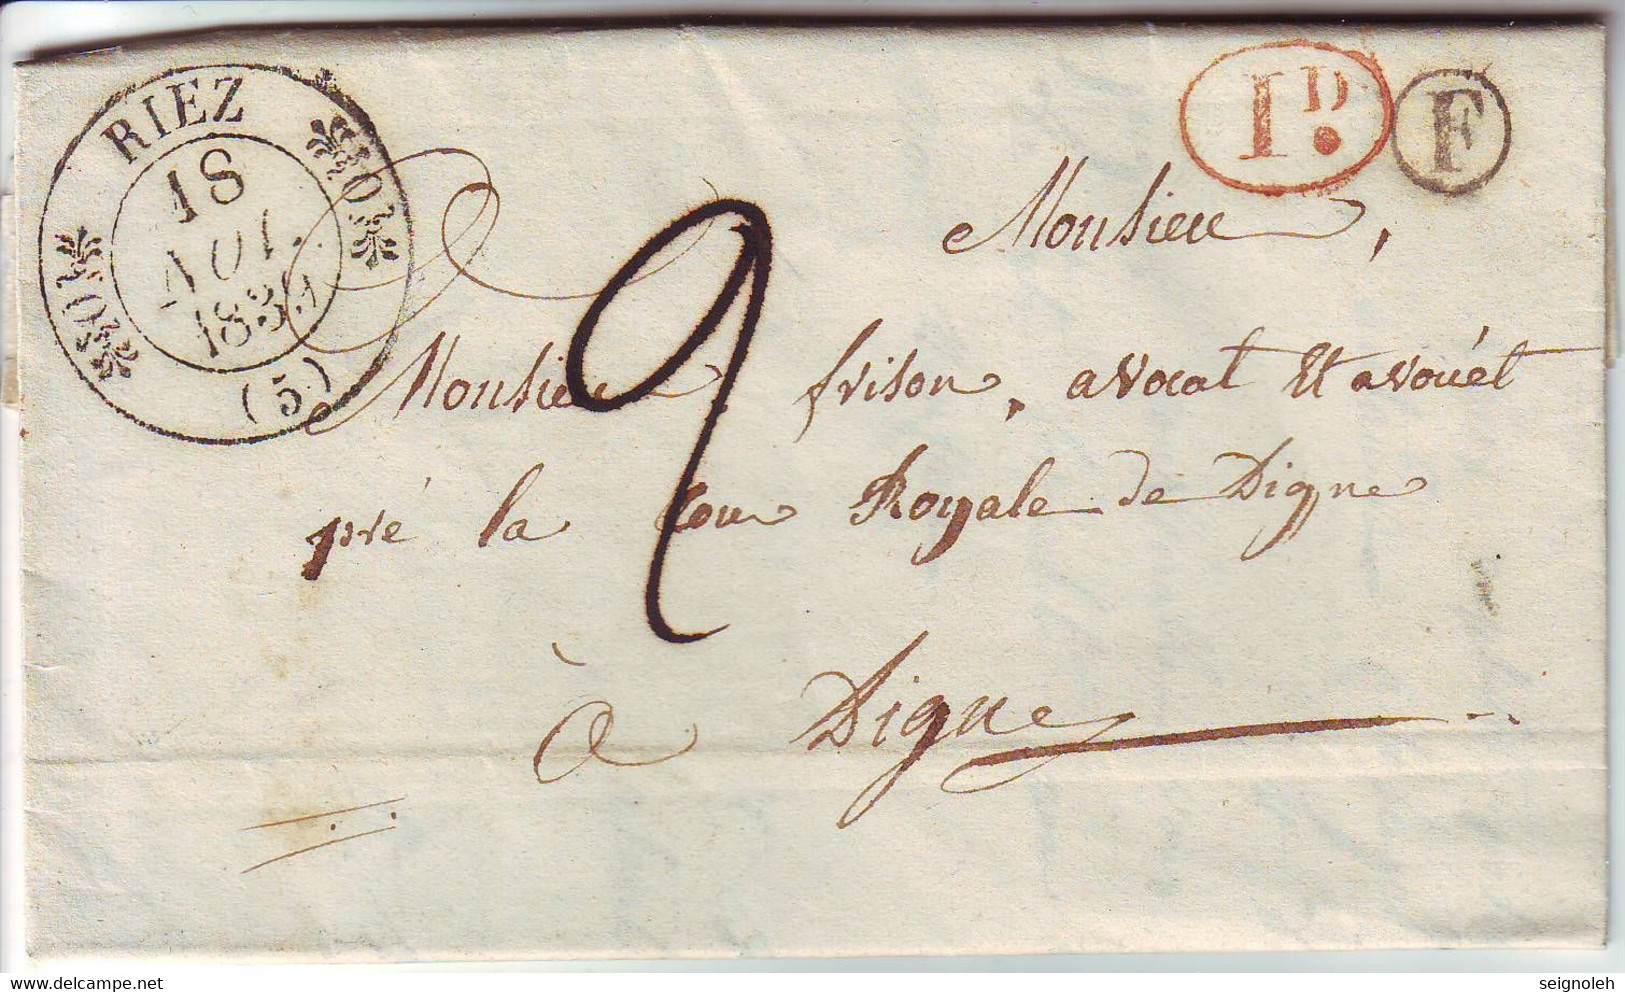 RIEZ
18
AOU.
183
(5)
1D.
F
2
Monsieur,
Monsieur frison, avocat Et avouét
pré la Cour Royale de Digne
à Digne
seignoleh